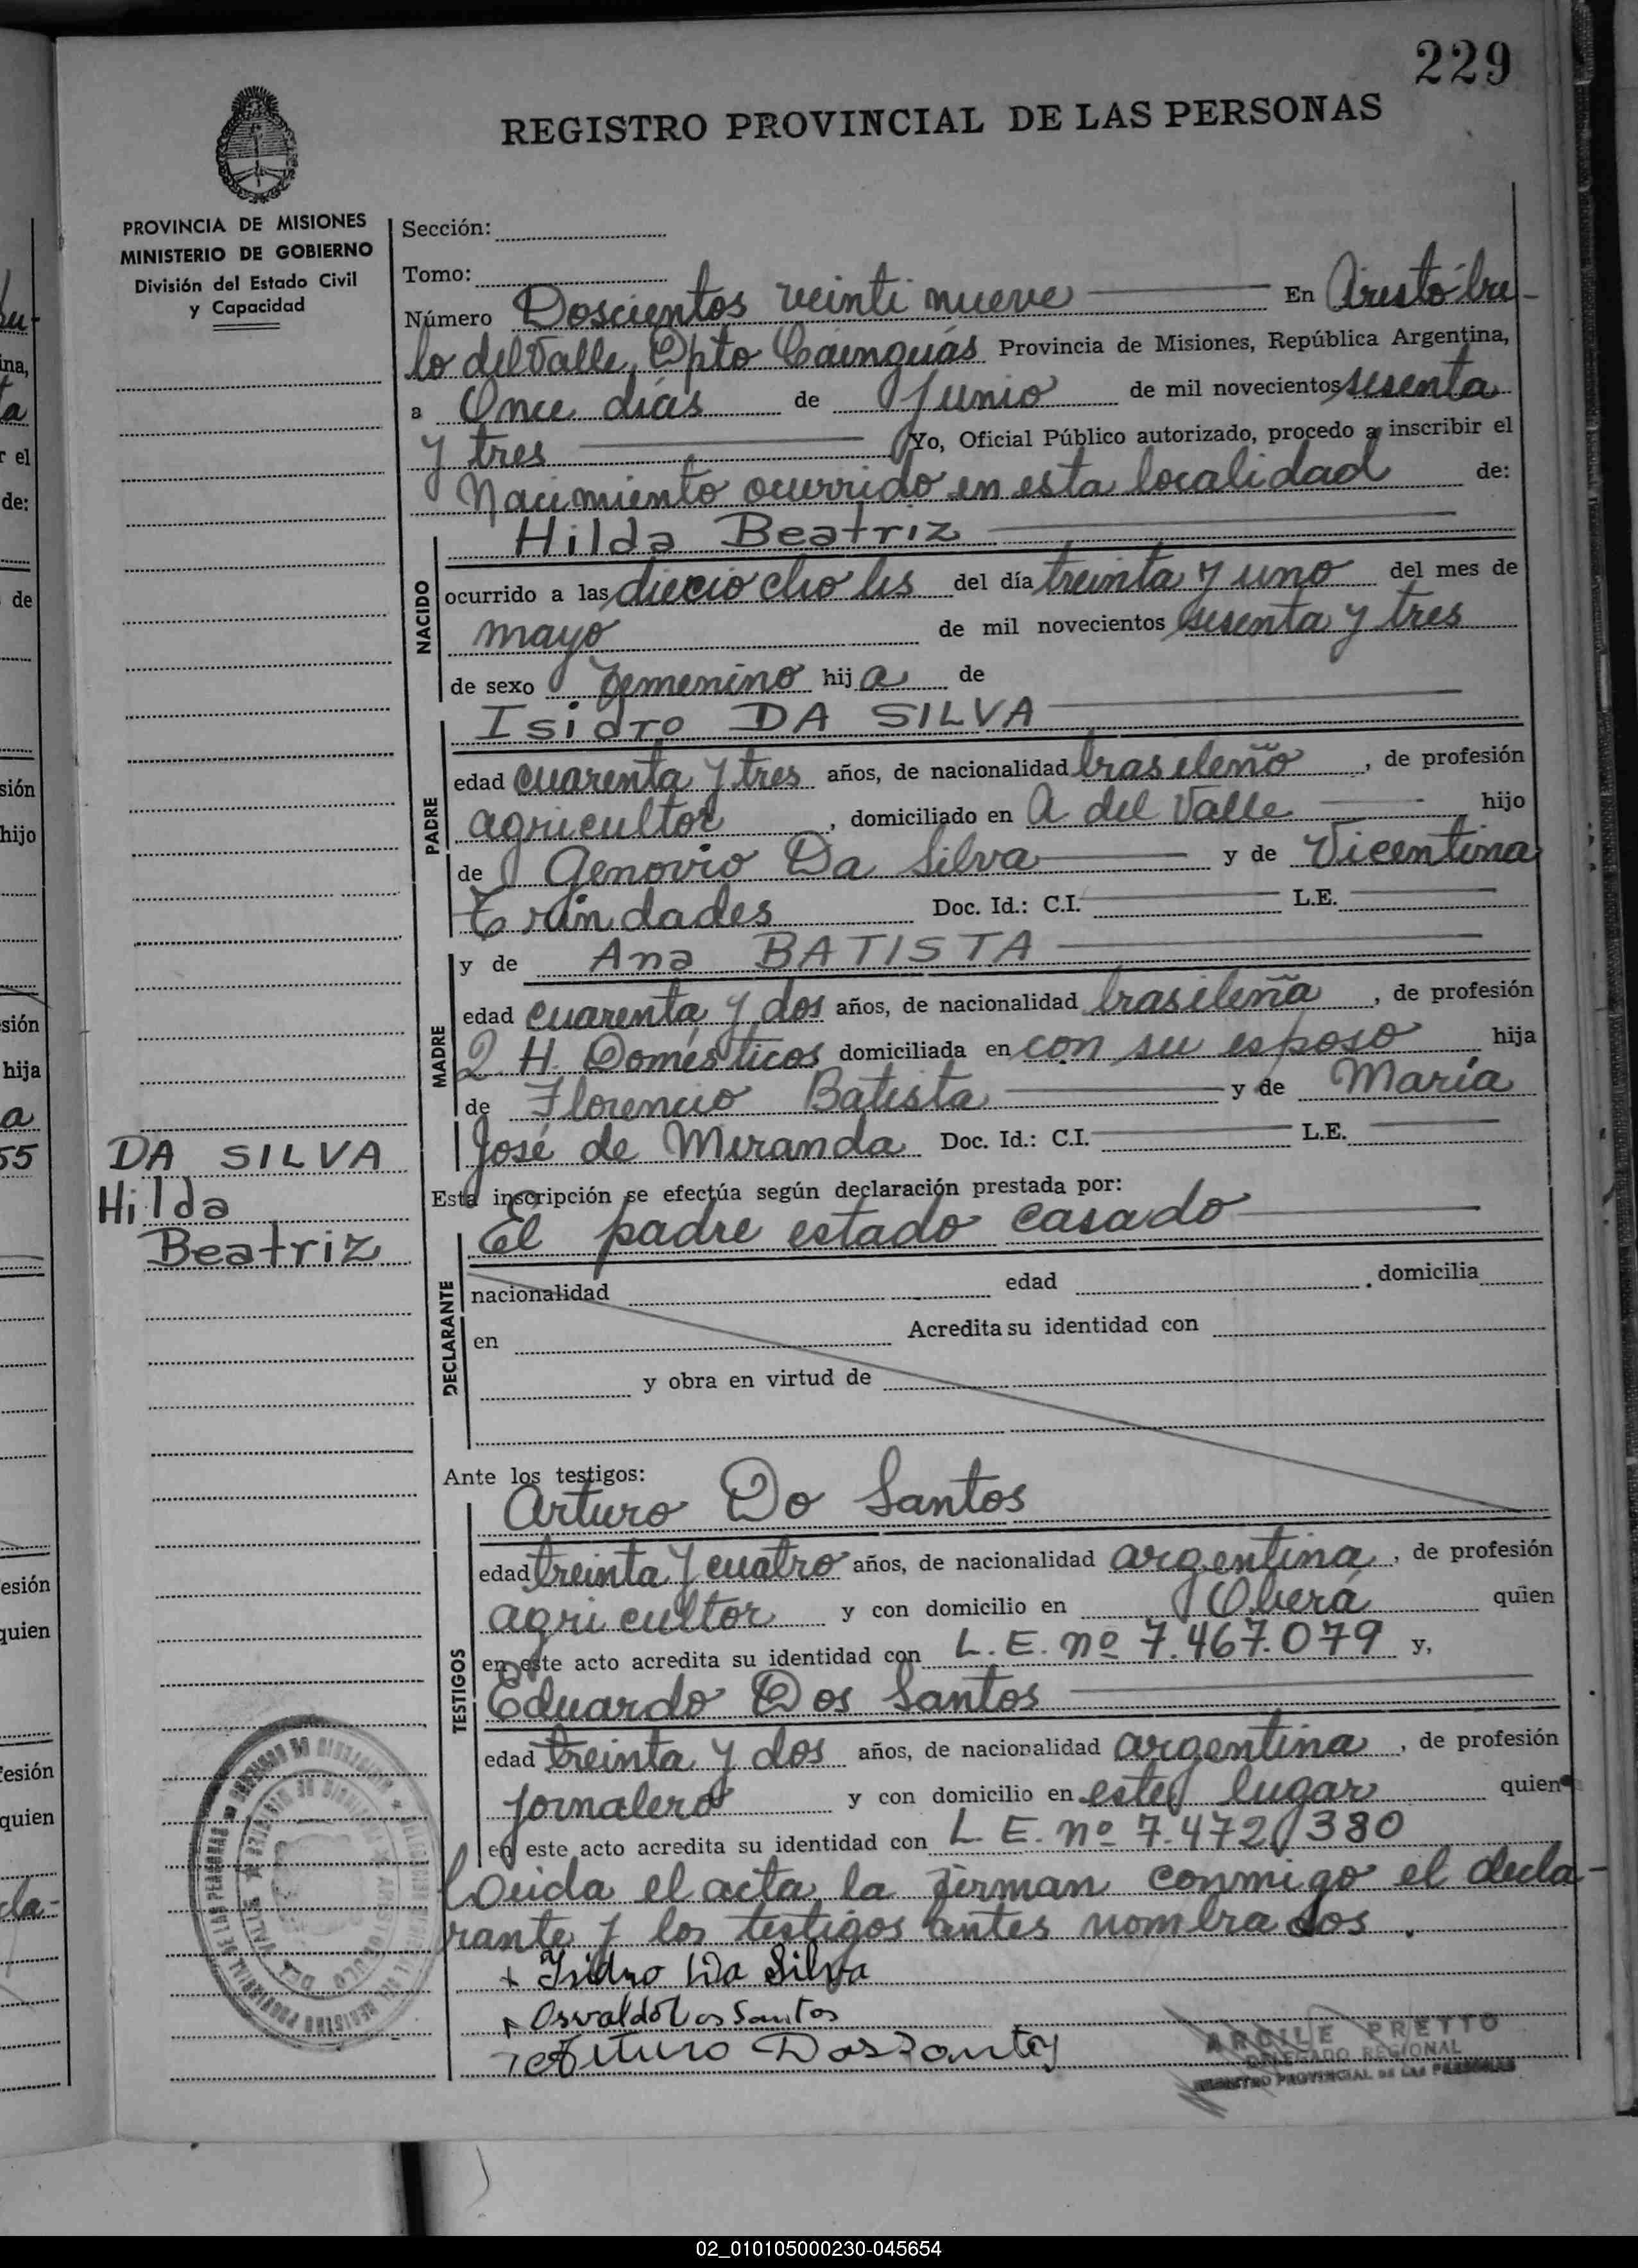 229
REGISTRO PROVINCIAL DE LAS PERSONAS
PROVINCIA DE MISIONES
MINISTERIO DE GOBIERNO
División del Estado Civil
y Capacidad
Sección:
Tomo:
Número Doscientos veinti nueve En Aristóbu-
lo del Valle, Dpto Cainguás Provincia de Misiones, República Argentina,
a Once días de Junio de mil novecientos sesenta
y tres Yo, Oficial Público autorizado, procedo a inscribir el
Nacimiento ocurrido en esta localidad de:
Hilda Beatriz
NACIDO
ocurrido a las dieciocho hs del día treinta y uno del mes de
mayo de mil novecientos sesenta y tres
de sexo femenino hija de
Isidro DA SILVA
PADRE
edad cuarenta y tres años, de nacionalidad brasileño, de profesión
agricultor, domiciliado en A del Valle hijo
de Genovio Da Silva y de Vicentina
Trindades Doc. Id.: C.I. L.E.
y de Ana BATISTA
MADRE
edad cuarenta y dos años, de nacionalidad brasileña, de profesión
Q. H. Domésticos domiciliada en con su esposo hija
de Florencio Batista y de María
José de Miranda Doc. Id.: C.I. L.E.
DA SILVA
Hilda
Beatriz
Esta inscripción se efectúa según declaración prestada por:
El padre estado casado
DECLARANTE
nacionalidad edad . domicilia
en Acredita su identidad con
y obra en virtud de
Ante los testigos:
Arturo Do Santos
TESTIGOS
edad treinta y cuatro años, de nacionalidad argentina, de profesión
agricultor y con domicilio en Oberá quien
en este acto acredita su identidad con L.E. nº 7.467.079 y,
Eduardo Dos Santos
edad treinta y dos años, de nacionalidad argentina, de profesión
jornalero y con domicilio en este lugar quien
en este acto acredita su identidad con L. E. nº 7.472.380
Leida el acta, la firman conmigo el decla-
rante y los testigos antes nombrados.
Isidro Da Silva
Osvaldo Dos Santos
Arturo Dos Santos
ARCILE PRETTO
DELEGADO REGIONAL
REGISTRO PROVINCIAL DE LAS PERSONAS
02_010105000230-045654